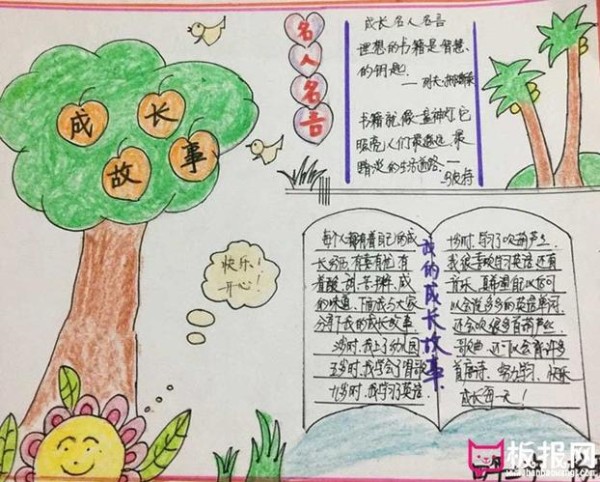 成长
故事
名人名言
成长名人名言
理想的书籍是智慧
的钥匙。
书籍就像一盏神灯,它
照亮人们最遥远、最
暗淡的生活道路。——
快乐!
开心!
我的成长故事
每个人都有着自己的成
长经历,有喜有忧,有
着酸、甜、苦、辣、咸
的味道,下面我与大家
分享下我的成长故事。
3岁时,我上了幼儿园
五岁时,我学会了背歌
九岁时,我学习了英语
十岁时,学习了吹葫芦丝
我很喜欢学习英语还有
音乐,
以会说多多的英语单词,
还会吹很多首葫芦丝
歌曲,还可以会背许多
首唐诗,努力学习,快乐
成长每一天!
板报网